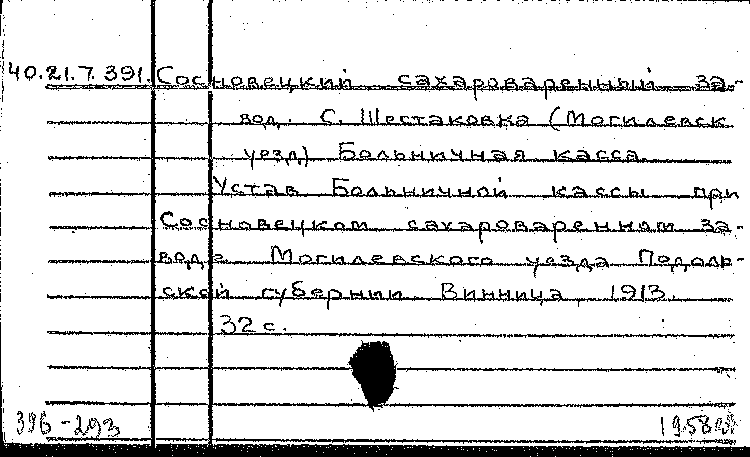 40.21.7.391. Сосновецкий сахароваренный за-
вод. С. Шестаковка (Могилевск.
уезд) Больничная касса.
Устав Больничной кассы при
Сосновецком сахароваренном за-
воде Могилевского уезда Подоль-
ской губернии. Винница, 1913.
32 с.
396-293